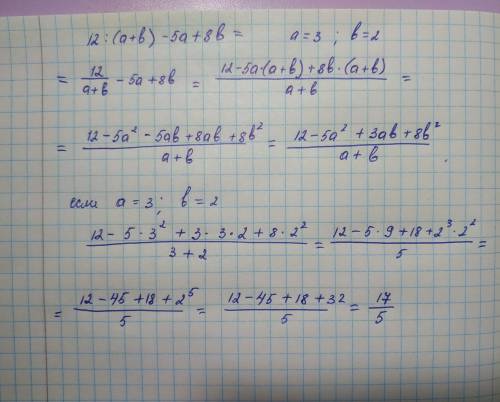 12 : (a+b) - 5a + 8b =      a = 3 ; b = 2
= \frac{12}{a+b} - 5a + 8b = \frac{12 - 5a·(a+b) + 8b·(a+b)}{a+b} =
= \frac{12 - 5a² - 5ab + 8ab + 8b²}{a+b} = \frac{12 - 5a² + 3ab + 8b²}{a+b} .
если a = 3 ; b = 2
\frac{12 - 5·3² + 3·3·2 + 8·2²}{3+2} = \frac{12 - 5·9 + 18 + 2³·2²}{5} =
= \frac{12 - 45 + 18 + 2⁵}{5} = \frac{12 - 45 + 18 + 32}{5} = \frac{17}{5}